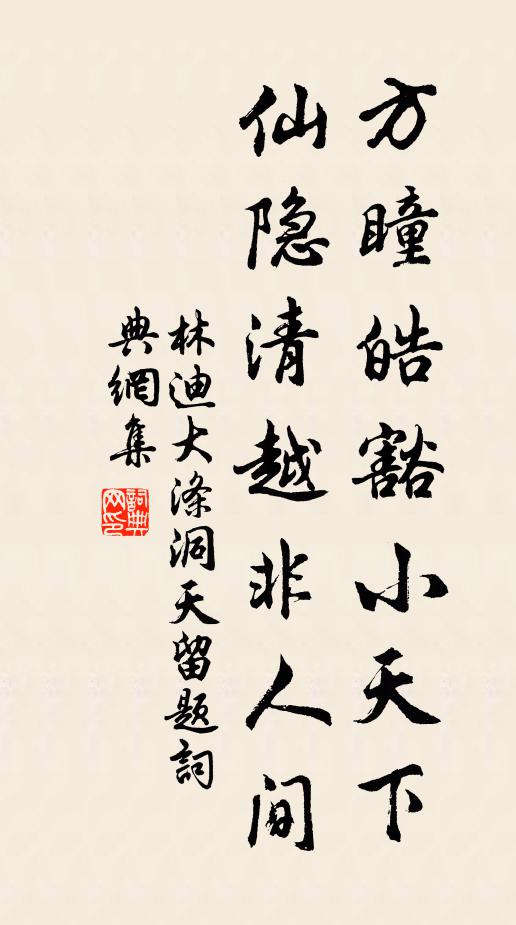 方瞳皓豁小天下
仙隐清越非人间
林迪大涤洞天留题詞
典網集
詞典
网印